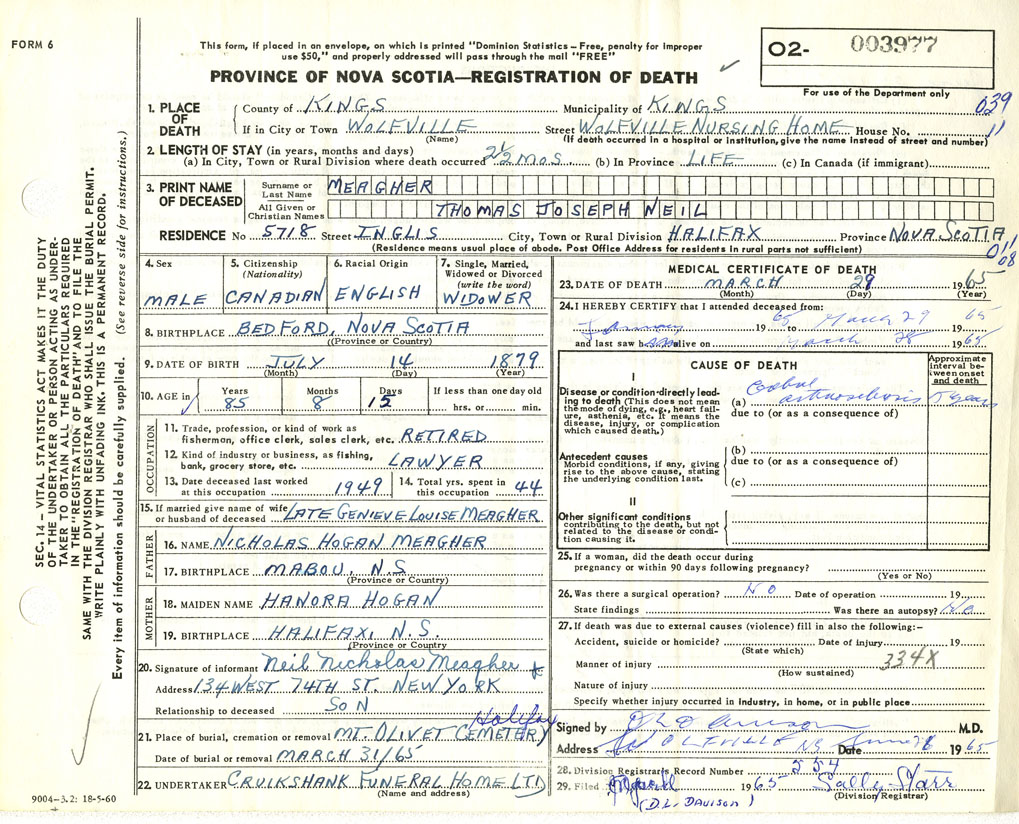 FORM 6
This form, if placed in an envelope, on which is printed "Dominion Statistics – Free, penalty for improper
use $50," and properly addressed will pass through the mail "FREE"
O2- 003977
For use of the Department only
PROVINCE OF NOVA SCOTIA—REGISTRATION OF DEATH
039
1. PLACE OF DEATH
County of KINGS Municipality of KINGS
If in City or Town WOLFVILLE Street WOLFVILLE NURSING HOME House No. 11
(Name) (If death occurred in a hospital or institution, give the name instead of street and number)
2. LENGTH OF STAY (in years, months and days)
(a) In City, Town or Rural Division where death occurred 2½ MOS. (b) In Province LIFE (c) In Canada (if immigrant)
3. PRINT NAME OF DECEASED
Surname or Last Name MEAGHER
All Given or Christian Names THOMAS JOSEPH NEIL
RESIDENCE No 5718 Street INGLIS City, Town or Rural Division HALIFAX Province NOVA SCOTIA
(Residence means usual place of abode. Post Office Address for residents in rural parts not sufficient)
4. Sex MALE
5. Citizenship (Nationality) CANADIAN
6. Racial Origin ENGLISH
7. Single, Married, Widowed or Divorced (write the word) WIDOWER
8. BIRTHPLACE BEDFORD, NOVA SCOTIA
(Province or Country)
9. DATE OF BIRTH JULY 14 1879
(Month) (Day) (Year)
10. AGE in Years 85 Months 8 Days 15 If less than one day old hrs. or min.
OCCUPATION
11. Trade, profession, or kind of work as
fisherman, office clerk, sales clerk, etc. RETIRED
12. Kind of industry or business, as fishing,
bank, grocery store, etc. LAWYER
13. Date deceased last worked at this occupation 1949
14. Total yrs. spent in this occupation 44
15. If married give name of wife
or husband of deceased LATE GENIEVE LOUISE MEAGHER
FATHER
16. NAME NICHOLAS HOGAN MEAGHER
17. BIRTHPLACE MABOU, N.S
(Province or Country)
MOTHER
18. MAIDEN NAME HANORA HOGAN
19. BIRTHPLACE HALIFAX, N.S.
(Province or Country)
20. Signature of informant Neil Nicholas Meagher
Address 134 WEST 74TH ST. NEW YORK
Relationship to deceased SON
Halifax
21. Place of burial, cremation or removal MT. OLIVET CEMETERY
Date of burial or removal MARCH 31/65
22. UNDERTAKER CRUIKSHANK FUNERAL HOME LTD
(Name and address)
MEDICAL CERTIFICATE OF DEATH
23. DATE OF DEATH MARCH 29 1965
(Month) (Day) (Year)
24. I HEREBY CERTIFY that I attended deceased from:
January 1965 to March 29 65
and last saw him alive on March 28 1965
CAUSE OF DEATH
Approximate interval between onset and death
I
Disease or condition directly leading to death (This does not mean
the mode of dying, e.g., heart failure, asthenia, etc. It means the
disease, injury, or complication
which caused death.)
(a) years
due to (or as a consequence of)
Antecedent causes
Morbid conditions, if any, giving
rise to the above cause, stating
the underlying condition last.
(b)
due to (or as a consequence of)
(c)
II
Other significant conditions
contributing to the death, but not
related to the disease or condition causing it.
25. If a woman, did the death occur during
pregnancy or within 90 days following pregnancy?
(Yes or No)
26. Was there a surgical operation? NO Date of operation 19
State findings Was there an autopsy? No
27. If death was due to external causes (violence) fill in also the following:-
Accident, suicide or homicide? Date of injury 19
(State which)
334X
Manner of injury
(How sustained)
Nature of injury
Specify whether injury occurred in industry, in home, or in public place
Signed by M.D.
Address WOLFVILLE NS Date 1965
28. Division Registrar's Record Number 554
29. Filed April 1965 Sally Starr
(D.L. DAVISON) (Division Registrar)
SEC. 14 – VITAL STATISTICS ACT MAKES IT THE DUTY
OF THE UNDERTAKER OR PERSON ACTING AS UNDERTAKER TO OBTAIN ALL THE PARTICULARS REQUIRED
IN THE "REGISTRATION OF DEATH" AND TO FILE THE
SAME WITH THE DIVISION REGISTRAR WHO SHALL ISSUE THE BURIAL PERMIT.
WRITE PLAINLY WITH UNFADING INK. THIS IS A PERMANENT RECORD.
Every item of information should be carefully supplied. (See reverse side for instructions.)
9004-3.2: 18-5-60